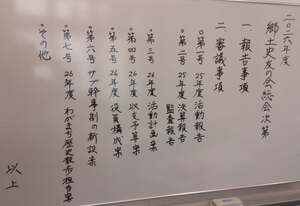 二〇二六年度
郷土史友の会総会次第
一 報告事項
・第一号 25年度活動報告
・第二号 25年度決算報告
監査報告
二 審議事項
・第三号 26年度活動計画案
・第四号 26年度収支予算案
・第五号 26年度役員構成案
・第六号 サブ幹事制の新設案
・第七号 26年度わがまち歴史散歩担当案
・その他
以上